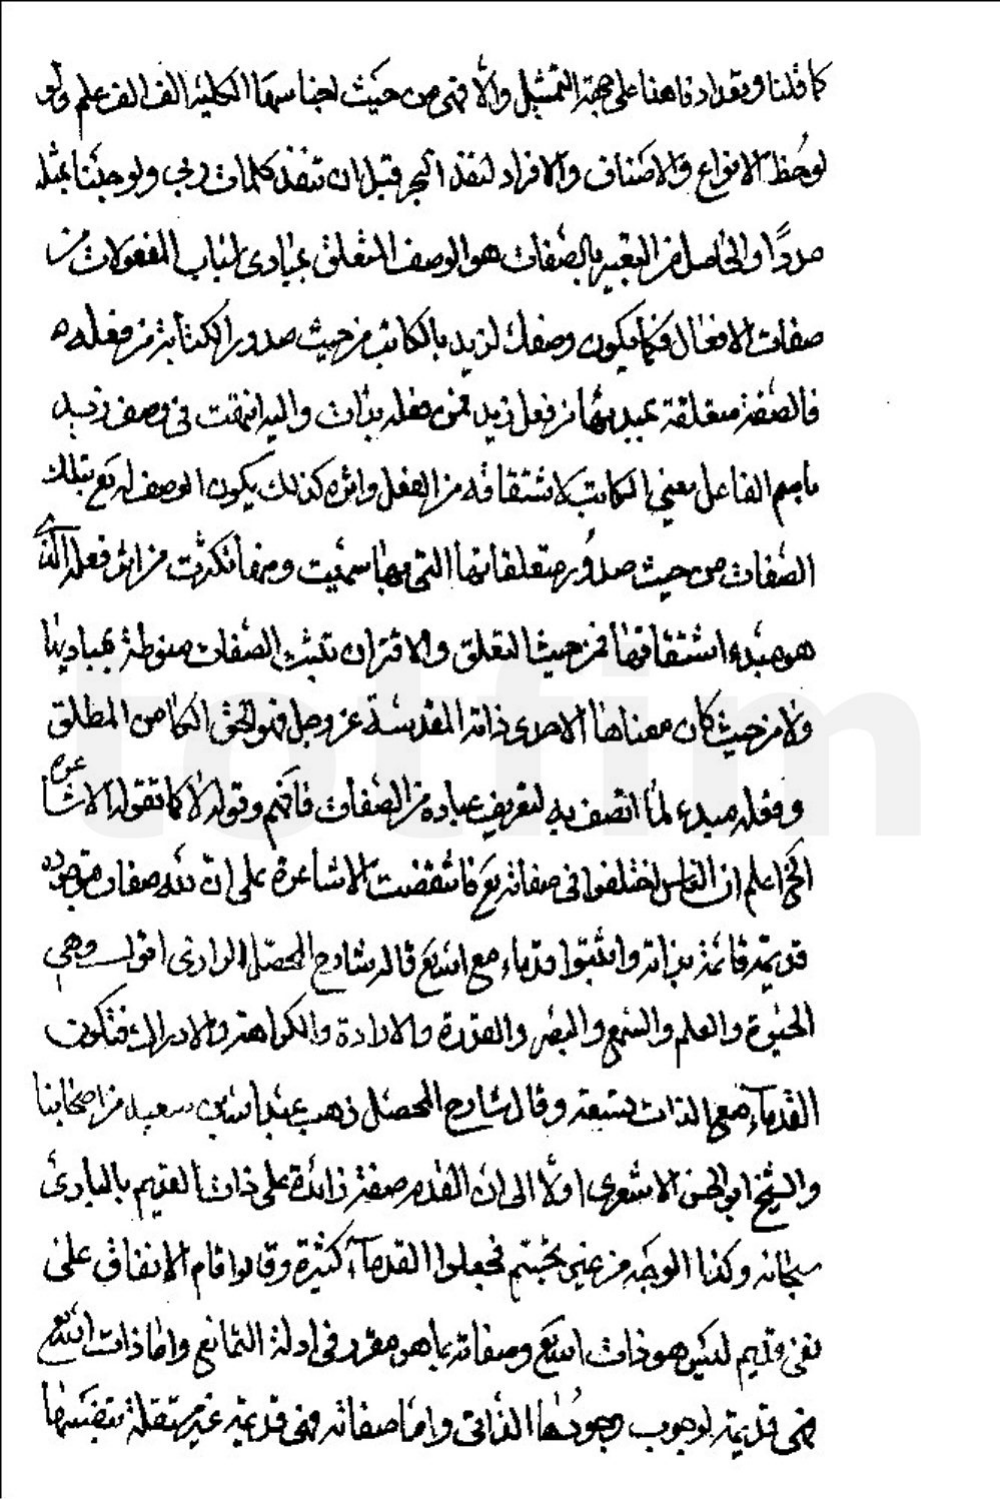 كما قلنا وتعدادنا هنا على جهة التمثيل والا فهى من حيث اجناسها الكلية الف الف علم ولو
لوحظ الانواع والاصناف والافراد لنفد البحر قبل ان تنفد كلمات ربي ولو جئنا بمثله
مددًا والحاصل من التعبير بالصفات هو الوصف المتعلق بمبادى لباب المفعولات من
صفات الافعال فكما يكون وصفك لزيد بالكاتب من حيث صدور الكتابة من فعله
فالصفة متعلقة بمبديها من فعل زيد فهى فعله بذات واليه انتهت فى وصف زيد
باسم الفاعل يعني الكاتب لاشتقاقه من الفعل واثره كذلك يكون الوصف له تع بتلك
الصفات من حيث صدور متعلقاتها التى بها سميت ومنها تكثرت من اثر فعله الذى
هو مبدء اشتقاقها فمن حيث التعلق والاقتران تثبت الصفات منوطة بمباديها
ولا من حيث كان معناها الا حدى ذاته المقدسة عز وجل فهو الحق الكامن المطلق
وفعله مبدء لما اتصف به لتعريف عباده من الصفات فافهم وقوله لا كما تقوله الاشاعره
الخ اعلم ان الناس اختلفوا فى صفاته تع فاتفقت الاشاعرة على ان لله صفات موجوده
قديمة قائمة بذاته واثبتوا قدماء مع الله تع قال شارح المحصل الرازى اقول وهى
الحيوة والعلم والسمع والبصر والقدرة والارادة والكراهة والادراك فتكون
القدماء مع الذات تسعة وقال شارح المحصل ذهب عبد الله بن سعيد من اصحابنا
والشيخ ابو الحسن الاشعرى اولا الى ان القدم صفة زائدة على ذات القديم بالبارئ
سبحانه وكذا الوجه من غير فجعلوا القدماء كثيرة وقالوا قام الاتفاق على
نفى قديم ليس هو ذات الله تع وصفاته بما هو مقرر فى ادلة التمانع واما ذات الله تع
فهى قديمة لوجوب وجودها الذاتى واما صفاته فهى قديمة غير مستقلة بنفسها
totfim